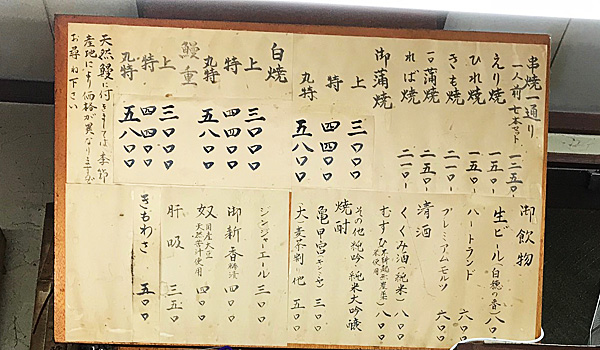 串焼一通り
一人前七本セット 一三五〇
えり焼 一五〇
ひれ焼 一五〇
きも焼 二一〇
一口蒲焼 二五〇
れば焼 二一〇
御蒲焼
上 三〇〇〇
特 四四〇〇
丸特 五八〇〇
白焼
上 三〇〇〇
特 四四〇〇
丸特 五八〇〇
鰻重
上 三〇〇〇
特 四四〇〇
丸特 五八〇〇
天然鰻に付きましては季節
産地により価格が異なりますので
お尋ね下さい
御飲物
生ビール(白穂乃香) 八〇〇
ハートランド 六〇〇
プレミアムモルツ 六〇〇
清酒
くくみ酒(純米) 八〇〇
むすひ 八〇〇
その他 純吟 純米大吟醸
焼酎
亀甲宮(キンミヤ) 三〇〇
大(麦茶割り他) 五〇〇
ジンジャエール 三〇〇
御新香 四〇〇
奴 国産大豆 天然苦汁使用 四〇〇
肝吸 三五〇
きもわさ 五〇〇